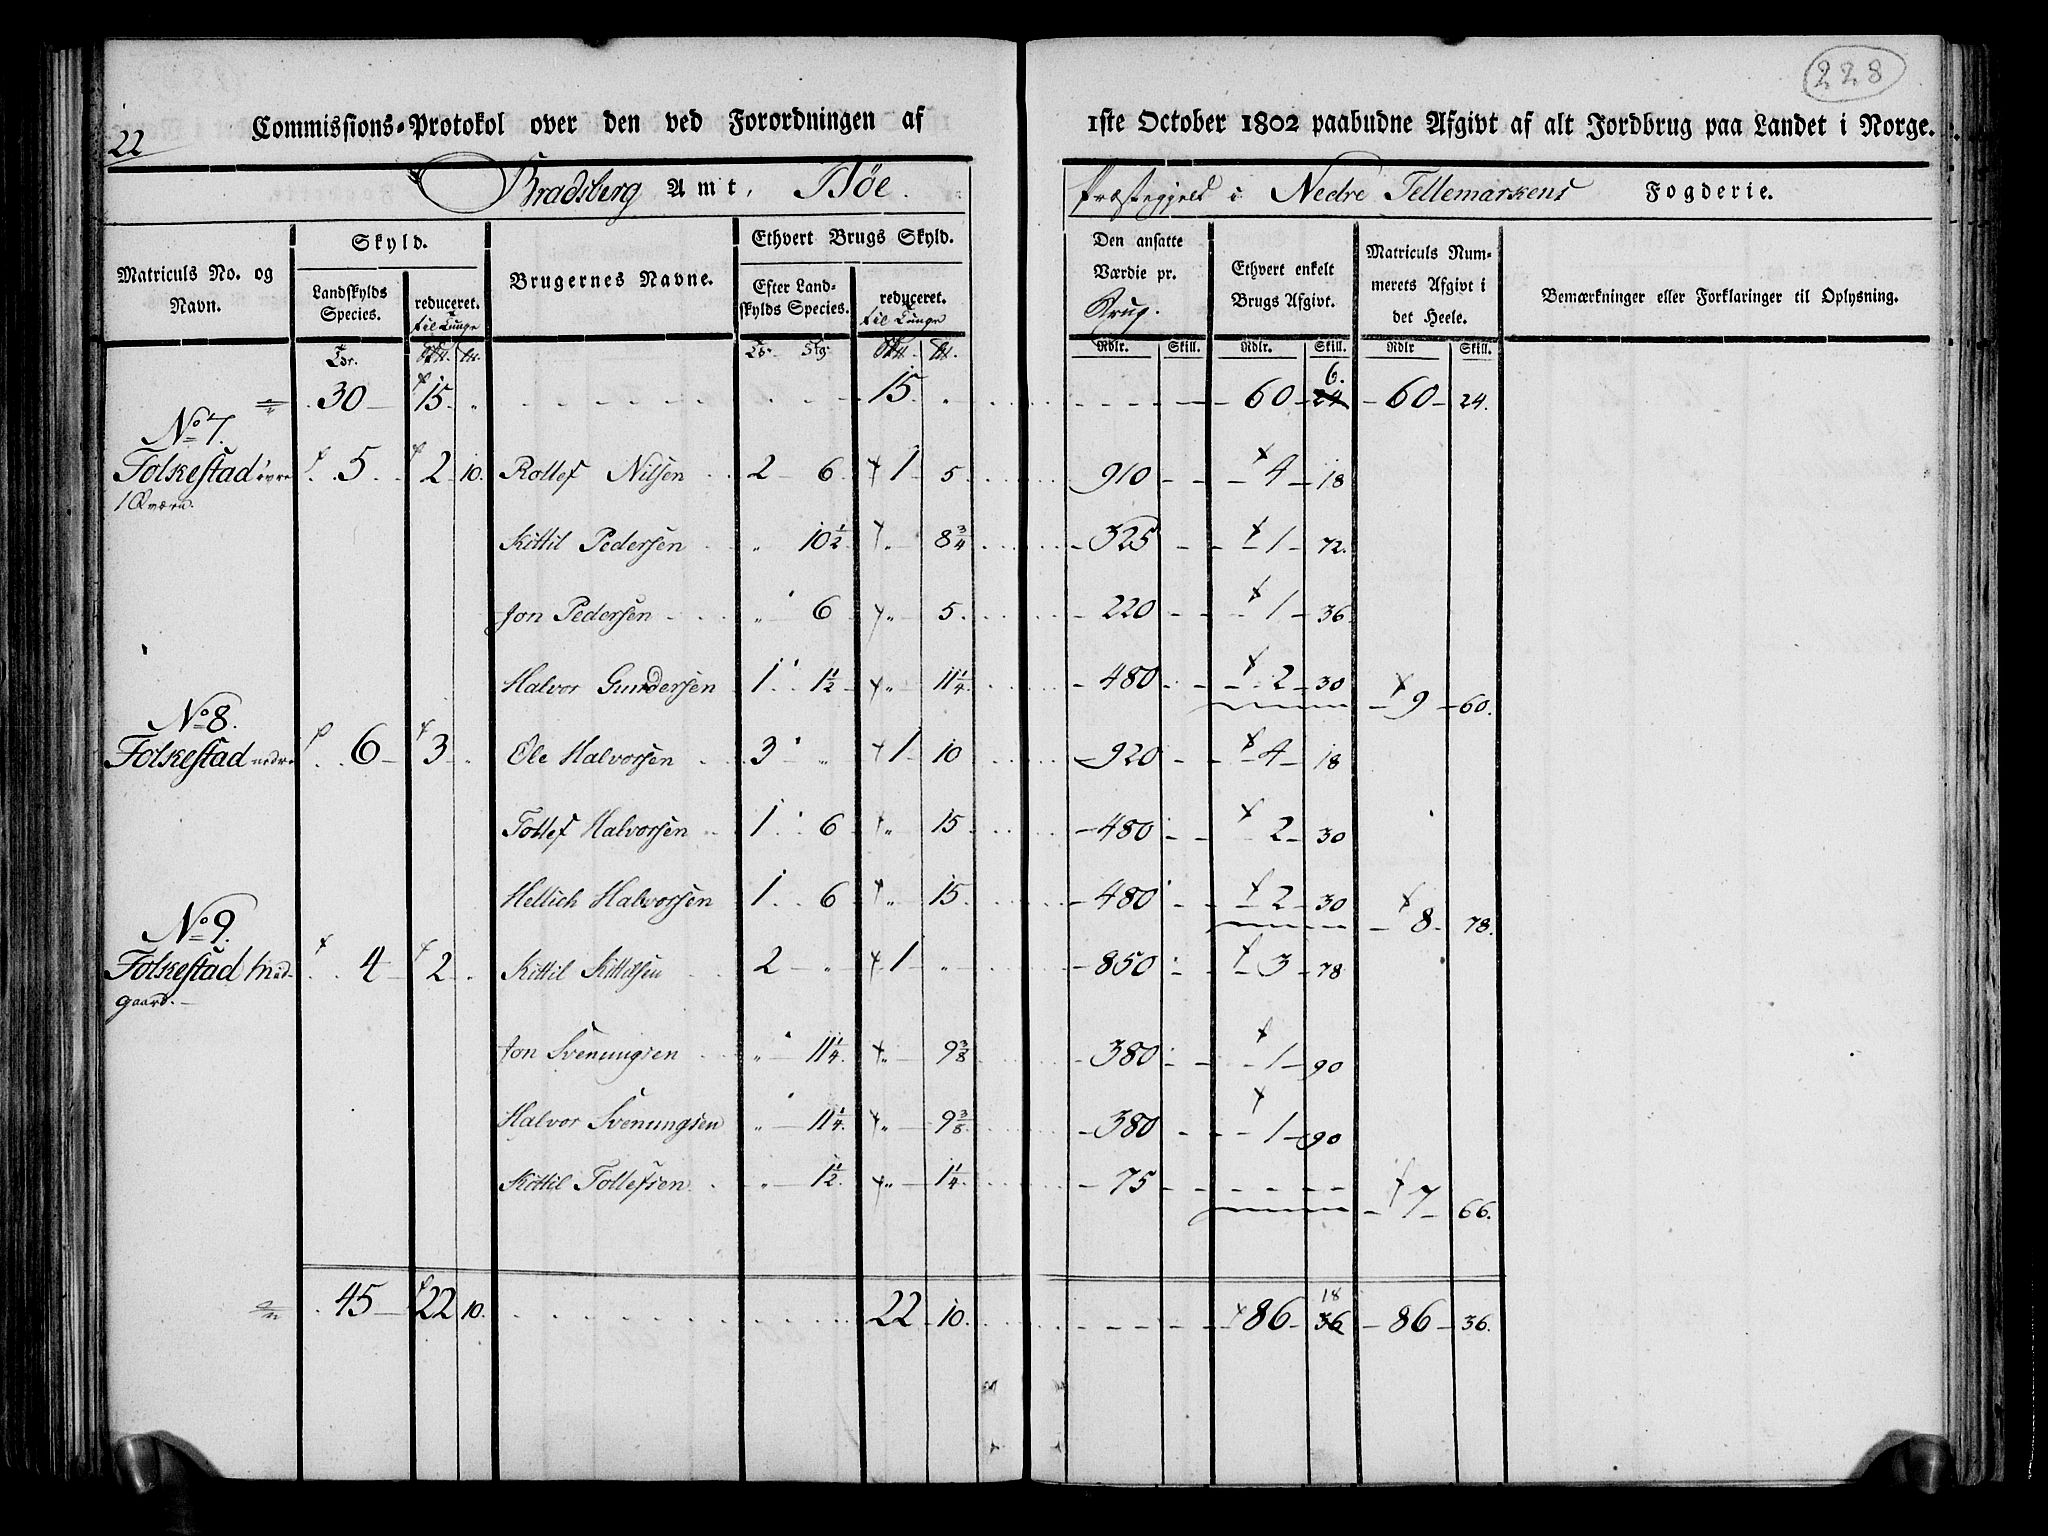 228
22
Commissions-Protokol over den ved Forordningen af 1ste October 1802 paabudne Afgivt af alt Jordbrug paa Landet i Norge.
Bradsberg Amt, Bøe. Præstegjeld i Nedre Tellemarkens Fogderie.
Matriculs No. og Navn. Skyld. Brugernes Navne. Ethvert Brugs Skyld. Den ansatte Værdie pr. Brug. Ethvert enkelt Brugs Afgivt. Matriculs Nummerets Afgivt i det Heele. Bemærkninger eller Forklaringer til Oplysning.
Landskylds Species. reduceret. til Tunge Efter Landskylds Species. reduceret. til Tunge
Tdr. Tdr. Stg. Rdlr. Skill. Rdlr. Skill. Rdlr Skill.
30 15 " 15 " 60 24 6. 60 24.
No 7.
Folkestad øvre 5 2 10. Rollef Nilsen 2 6 1 5 910 4 18
1 Qværn.
Kittil Pedersen " 10½ " 8¾ 325 1 72.
Jon Pedersen " 6 " 5. 220 1 36
Halvor Gundersen 1 1½ " 11¼ 480 2 30 9 60.
No 8.
Folkestad nedre 6 3 " Ole Halvorsen 3 " 1 10 920 4 18
Tollef Halvorsen 1 6 " 15 480 2 30
Hellich Halvorsen 1 6 " 15 480 2 30 8 78.
No 9.
Folkestad Mid- 4 2 " Kittil Kittilsen 2 " 1 " 850 3 78
gaard.
Jon Svenungsen " 11¼ " 9⅜ 380 1 90
Halvor Svenungsen " 11¼ " 9⅜ 380 1 90
Kittil Tollefsen " 1½ " 1¼ 75 7 66.
45 22 10. 22 10. 86 36 18 86 36.